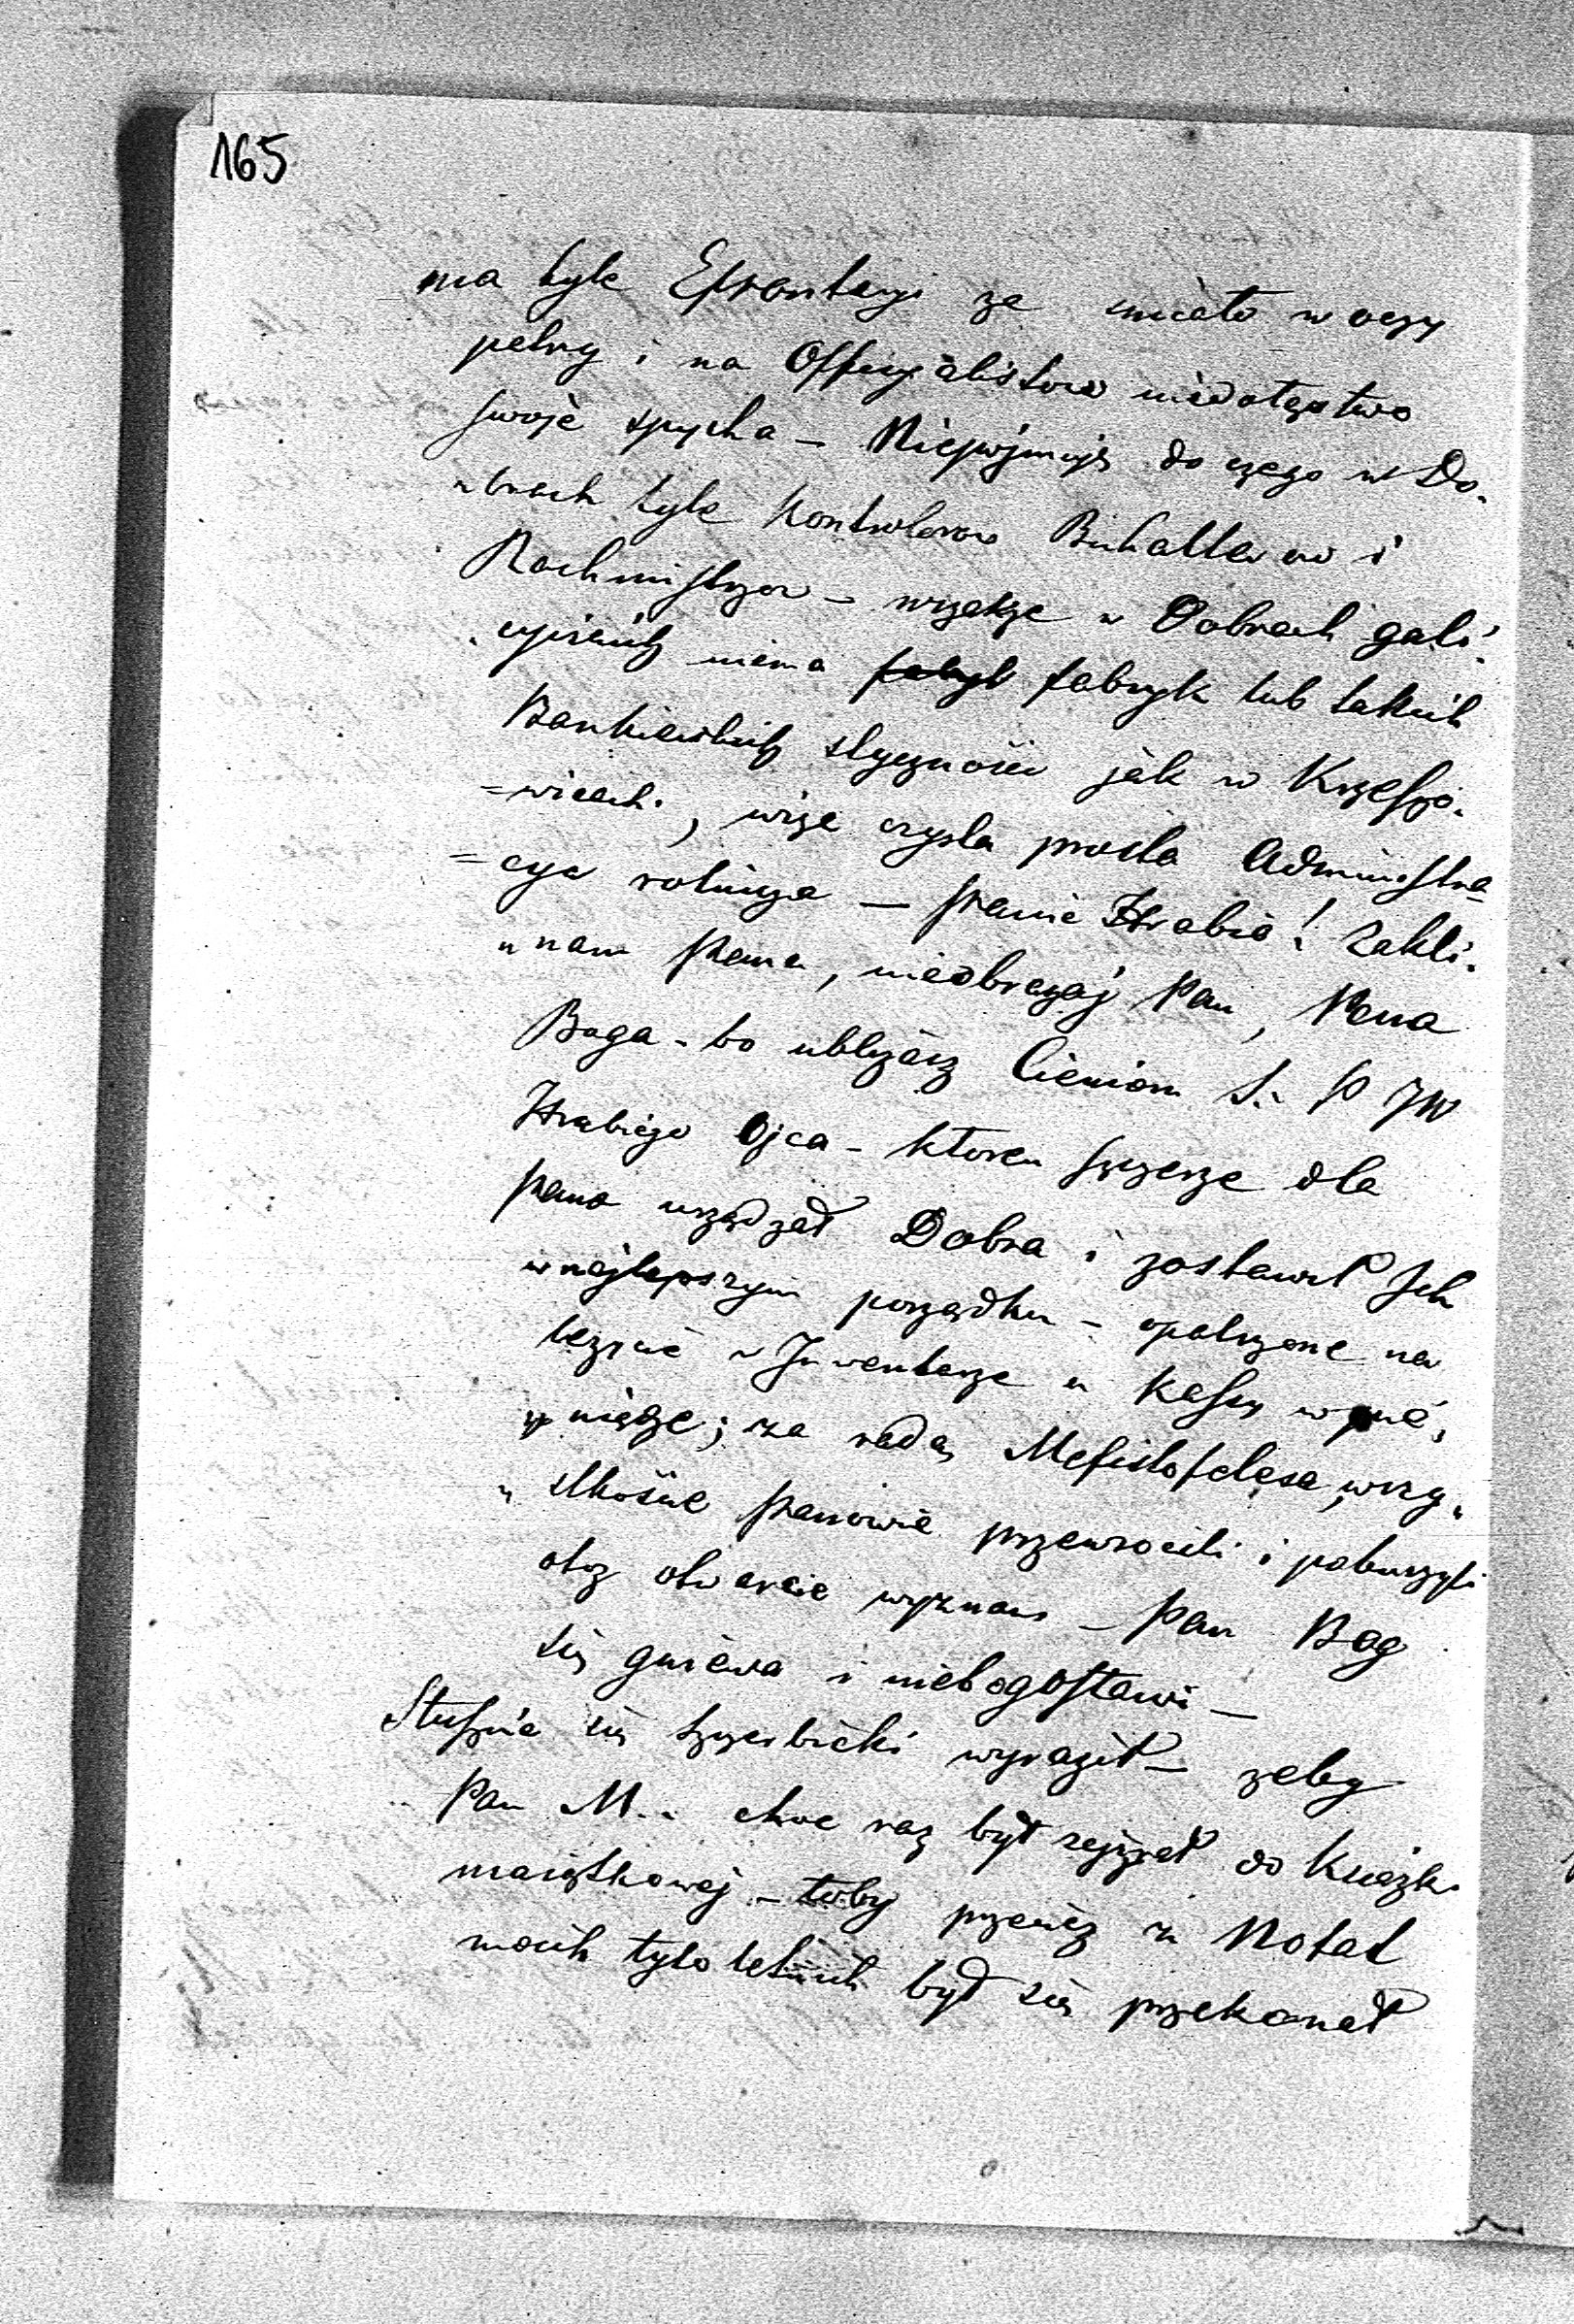 165
ma tyle Efronteryi ze smiało w oczy
pełny i na Offiycialistow niedołęstwo
swoje spycha – Niepojmuję do czego w Do-
„brach tyle Kontrolorow Buhalterow i
Rachmistrzow – wszakże w Dobrach gali-
„cyiskich niema fabryk lub takich
Bankierskich styczności jak w Krzeszo-
=wicach, więc czysta prosta Administra=
=cya rolnicza — Panie Hrabio! Zakli-
„nam Pana, nieobrażaj Pan, Pana
Boga – bo ubliżasz Cieniom S. P JW
Hrabiego Ojca – ktoren szczerze dla
Pana urządzał Dobra i zostawił Jch
w najlepszym porządku – opatrzone na
leżycie w Jnwentarze a Kassy w pie„
niądze; za radą Mefistofelesa wszy„
„stkoście Panowie przewrocili i poburzyli
otoz otwarcie wyznam – Pan Bog
się gniewa i niebogosławi —
Słusznie się Szczerbicki wyraził – zeby
Pan M.. choc raz był zejrzał do Książki
maiątkowej – toby przeciez z Notat
moich tyloletnich był się przekonał